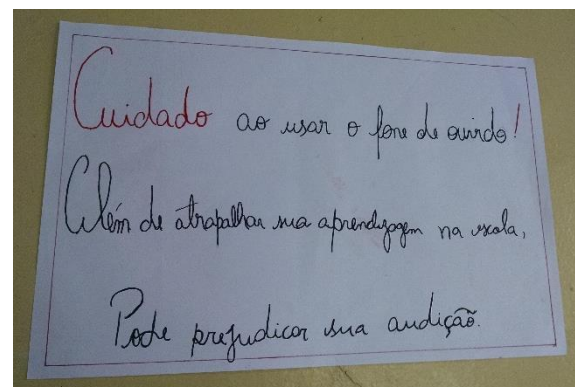 Cuidado ao usar o fone de ouvido!
Além de atrapalhar sua aprendizagem na escola,
Pode prejudicar sua audição.